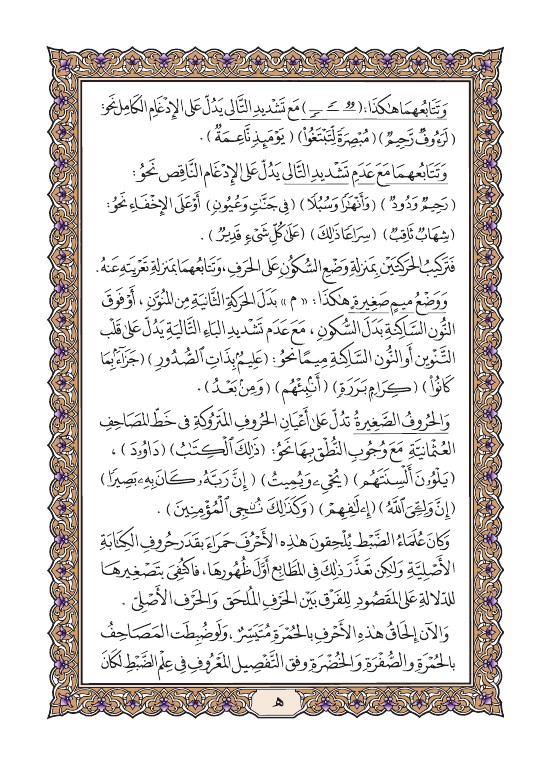 وَتَتَابُعُهُمَا هَٰكَذَا: (ـٌـ ـً ـٍ) مَعَ تَشْدِيدِ التَّالِي يَدُلُّ عَلَى الإِدْغَامِ الكَامِلِ نَحْوُ:
(لَرَءُوفٞ رَّحِيمٞ) (مُبۡصِرَةٗ لِّتَبۡتَغُواْ) (يَوۡمَئِذٖ نَّاعِمَةٞ).
وَتَتَابُعُهُمَا مَعَ عَدَمِ تَشْدِيدِ التَّالِي يَدُلُّ عَلَى الإِدْغَامِ النَّاقِصِ نَحْوُ:
(رَحِيمٞ وَدُودٞ) (وَأَنۡهَٰرٗا وَسُبُلٗا) (فِي جَنَّٰتٖ وَعُيُونٍ) أَوْ عَلَى الإِخْفَاءِ نَحْوُ:
(شِهَابٞ ثَاقِبٞ) (سِرَاعٗا ذَٰلِكَ) (عَلَىٰ كُلِّ شَيۡءٖ قَدِيرٞ).
فَتَرْكِيبُ الحَرَكَتَيْنِ بِمَنْزِلَةِ وَضْعِ السُّكُونِ عَلَى الحَرْفِ، وَتَتَابُعُهُمَا بِمَنْزِلَةِ تَعْرِيَتِهِ عَنْهُ.
وَوَضْعُ مِيمٍ صَغِيرَةٍ هَٰكَذَا: «م» بَدَلَ الحَرَكَةِ الثَّانِيَةِ مِنَ المُنَوَّنِ، أَوْ فَوْقَ
النُّونِ السَّاكِنَةِ بَدَلَ السُّكُونِ، مَعَ عَدَمِ تَشْدِيدِ البَاءِ التَّالِيَةِ يَدُلُّ عَلَى قَلْبِ
التَّنْوِينِ أَوِ النُّونِ السَّاكِنَةِ مِيمًا نَحْوُ: (عَلِيمُۢ بِذَاتِ ٱلصُّدُورِ) (جَزَآءَۢ بِمَا
كَانُواْ) (كِرَامِۭ بَرَرَةٖ) (أَنۢبِئۡهُم) (وَمِنۢ بَعۡدُ).
وَالحُرُوفُ الصَّغِيرَةُ تَدُلُّ عَلَى أَعْيَانِ الحُرُوفِ المَتْرُوكَةِ فِي خَطِّ المَصَاحِفِ
العُثْمَانِيَّةِ مَعَ وُجُوبِ النُّطْقِ بِهَا نَحْوُ: (ذَٰلِكَ ٱلۡكِتَٰبُ) (دَاوُۥدَ)،
(يَلۡوُۥنَ أَلۡسِنَتَهُم) (يُحۡيِۦ وَيُمِيتُ) (إِنَّ رَبَّهُۥ كَانَ بِهِۦ بَصِيرٗا)
(إِنَّ وَلِـِّۧيَ ٱللَّهُ) (إِۦلَٰفِهِمۡ) (وَكَذَٰلِكَ نُـۨجِي ٱلۡمُؤۡمِنِينَ).
وَكَانَ عُلَمَاءُ الضَّبْطِ يُلْحِقُونَ هَٰذِهِ الأَحْرُفَ حَمْرَاءَ بِقَدْرِ حُرُوفِ الكِتَابَةِ
الأَصْلِيَّةِ وَلَكِنْ تَعَذَّرَ ذَلِكَ فِي المَطَابِعِ أَوَّلَ ظُهُورِهَا، فَاكْتُفِيَ بِتَصْغِيرِهَا
لِلدَّلَالَةِ عَلَى المَقْصُودِ لِلْفَرْقِ بَيْنَ الحَرْفِ المُلْحَقِ وَالحَرْفِ الأَصْلِيِّ.
وَالآنَ إِلْحَاقُ هَٰذِهِ الأَحْرُفِ بِالحُمْرَةِ مُتَيَسِّرٌ، وَلَوْ ضُبِطَتِ المَصَاحِفُ
بِالحُمْرَةِ وَالصُّفْرَةِ وَالخُضْرَةِ وَفْقَ التَّفْصِيلِ المَعْرُوفِ فِي عِلْمِ الضَّبْطِ لَكَانَ
ه